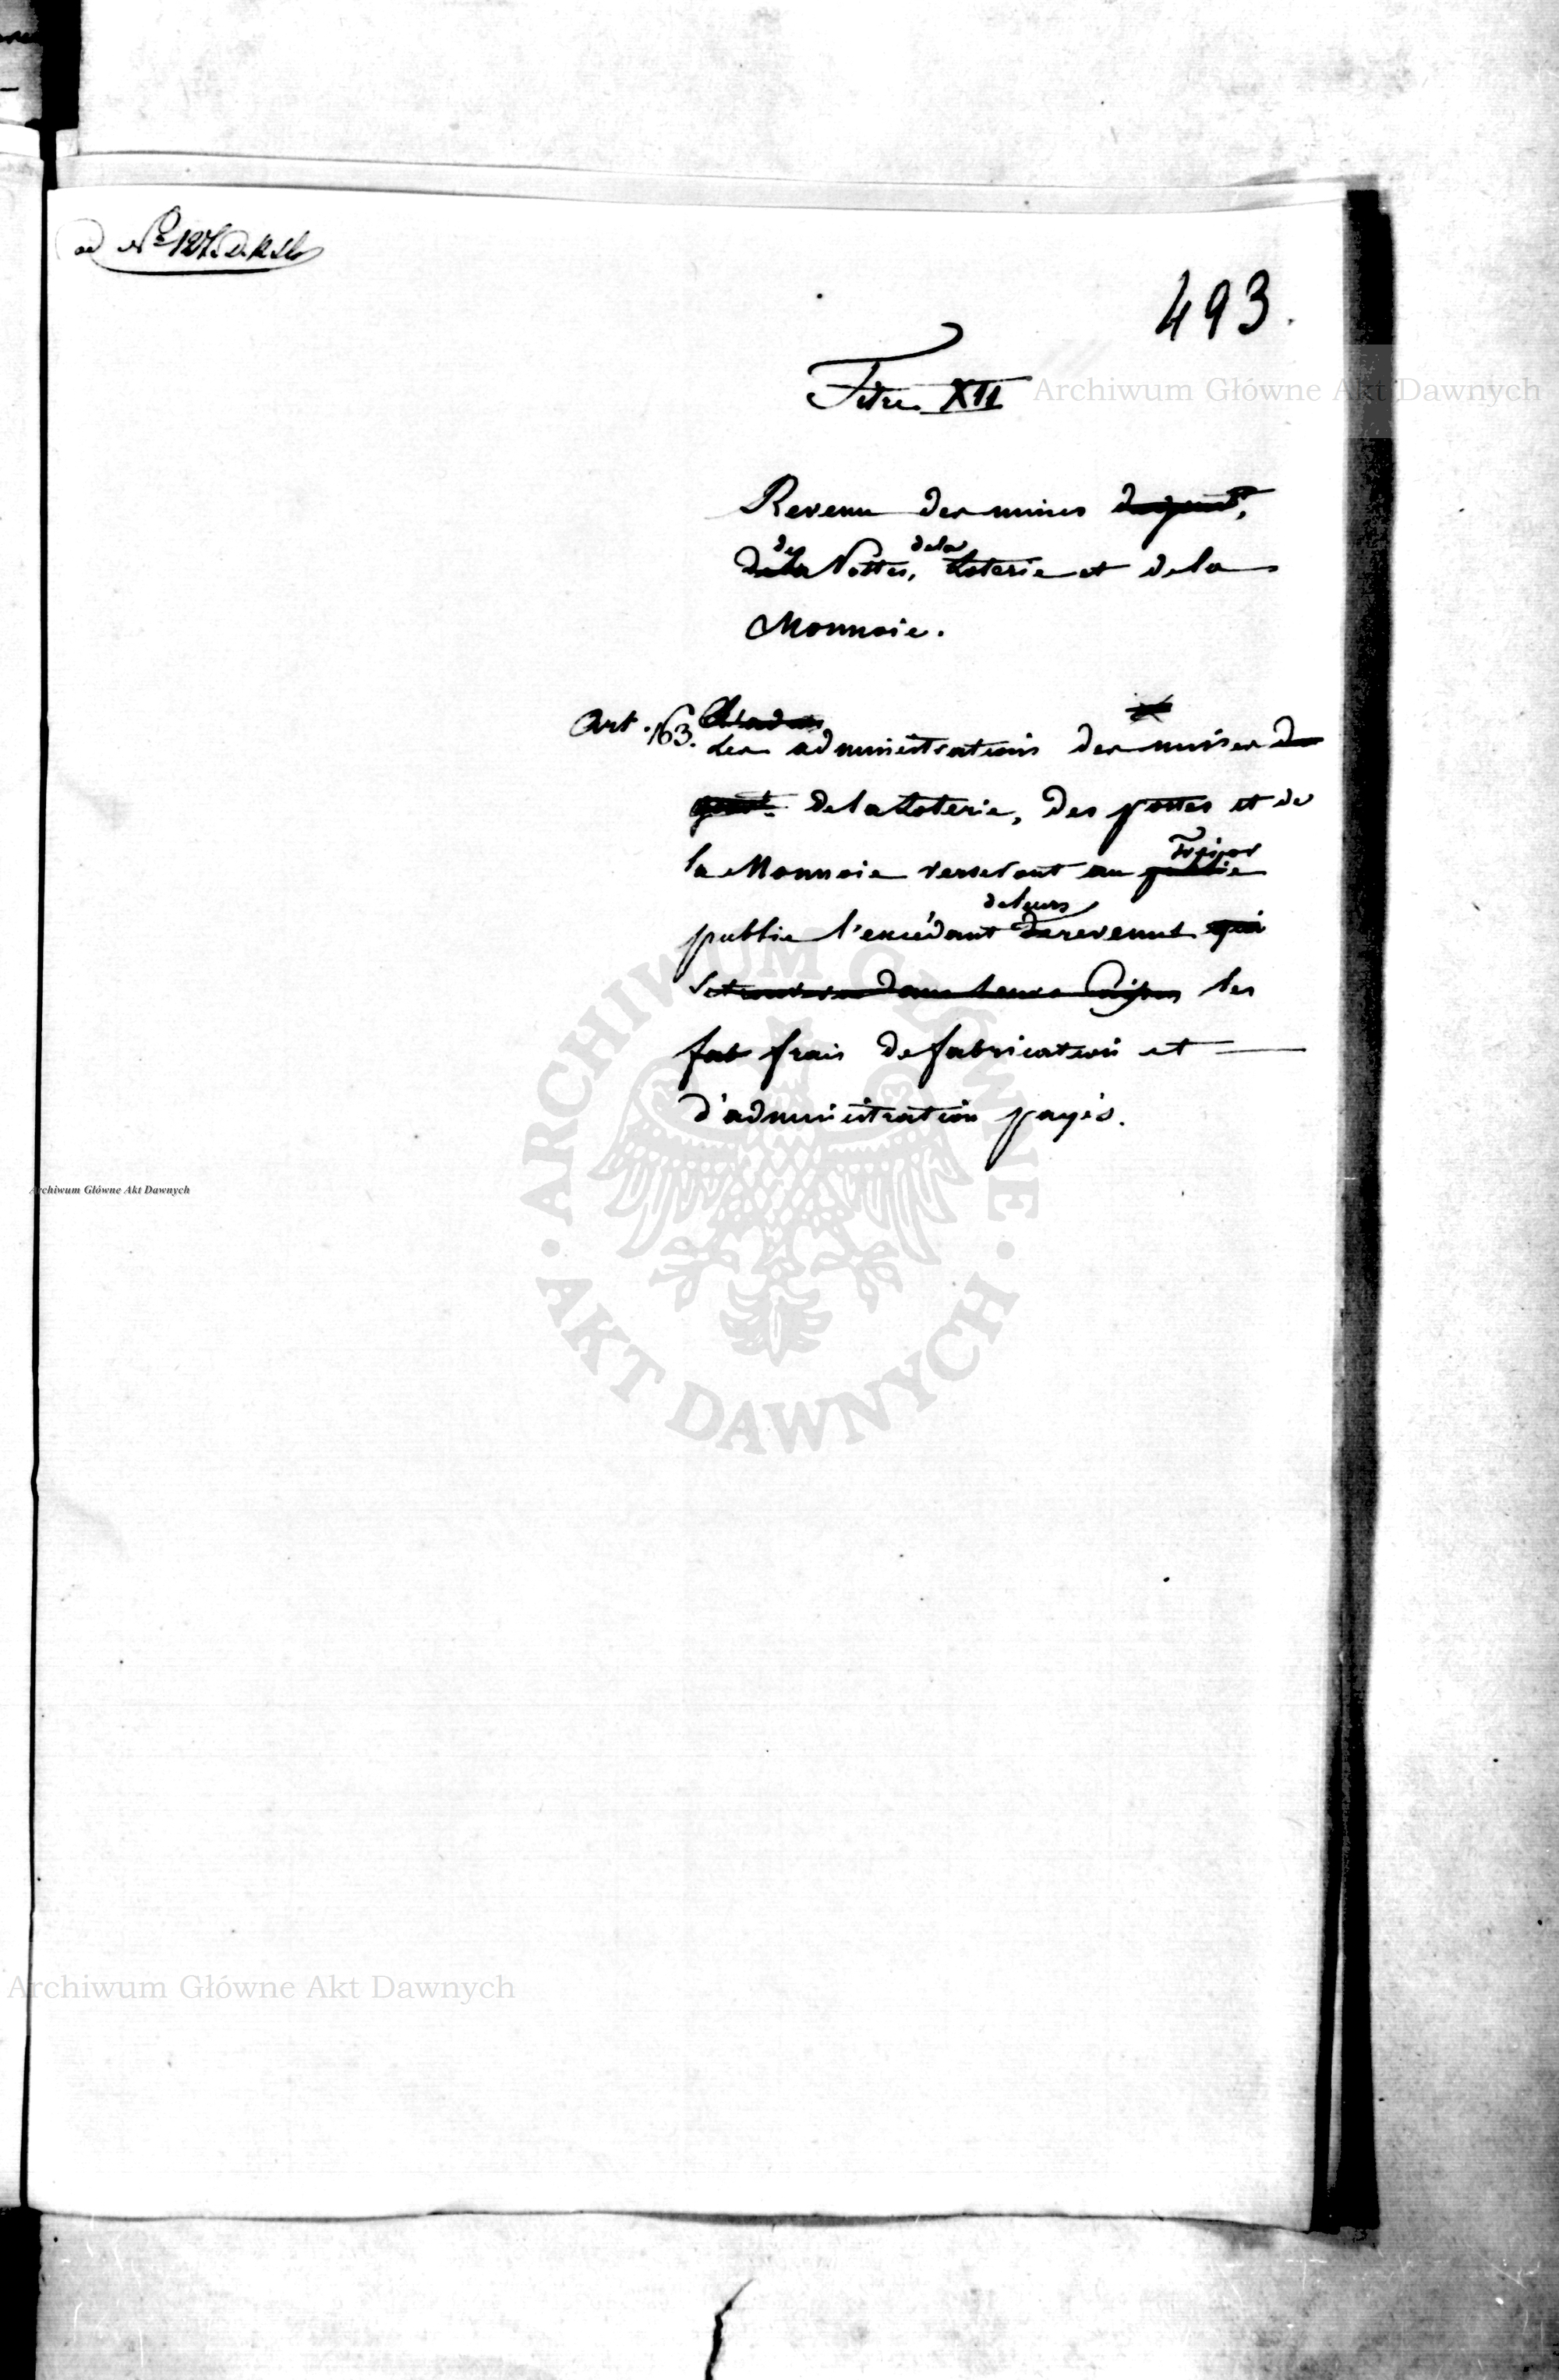 ad No 127.
493.
Titre XII
Revenu des mines
des de la
de la Postes, Loterie et de la
Monnoie.
Art. 163.
Les administrations des mines de
de la Loterie, des postes et de
Trésor
la Monnoie verseront au public
de leurs
public l'excédant de revenus qui
se trouvera dans leurs Caisses les
fab frais de fabrication et
d'administration payés.
Archiwum Główne Akt Dawnych
Archiwum Główne Akt Dawnych
Archiwum Główne Akt Dawnych
ARCHIWUM GŁÓWNE · AKT DAWNYCH ·